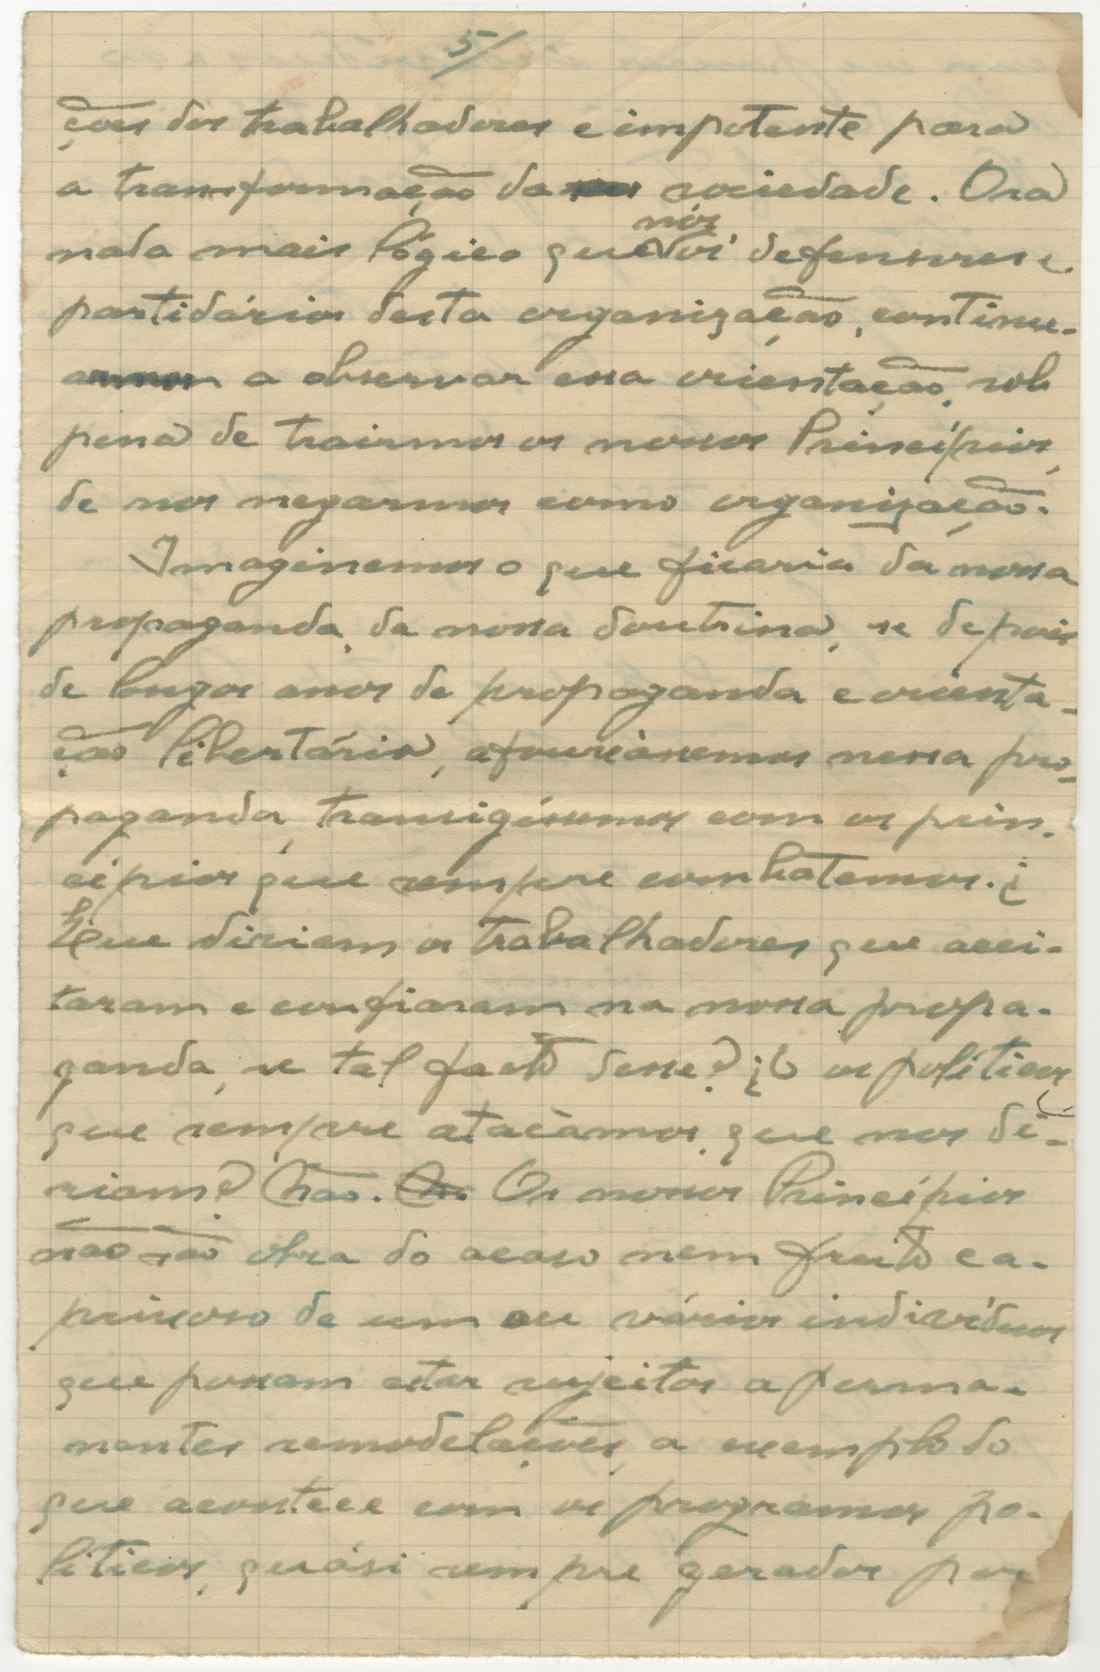 5/
ções dos trabalhadores e impotente para
a transformação da sociedade. Ora
nada mais lógico que nós defensores e
partidários desta organização, continue-
mos a observar essa orientação, sob
pena de traírmos os nossos Princípios,
de nos negarmos como organização.
Imaginemos o que ficaria da nossa
propaganda, da nossa doutrina, se depois
de longos anos de propaganda e orienta-
ção libertária, afouxássemos nessa pro-
paganda, transigíssemos com os prin-
cípios que sempre combatemos. ¿
Que diriam os trabalhadores que acei-
taram e confiaram na nossa propa-
ganda, se tal facto desse? ¿E os políticos
que sempre atacámos, que nos di-
riam? Não. Os nossos Princípios
não são obra do acaso nem fruto ca-
prixoso de um ou vários indivíduos
que possam estar sujeitos a perma-
nentes remodelações, a exemplo do
que acontece com os programas po-
líticos, quási sempre gerados por